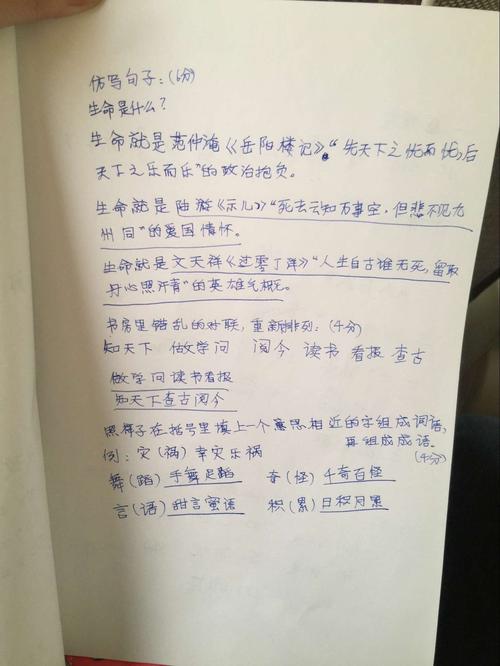 仿写句子：(6分)
生命是什么？
生命就是范仲淹《岳阳楼记》“先天下之忧而忧，后
天下之乐而乐”的政治抱负。
生命就是陆游《示儿》“死去元知万事空，但悲不见九
州同”的爱国情怀。
生命就是文天祥《过零丁洋》“人生自古谁无死，留取
丹心照汗青”的英雄气概。
书房里错乱的对联，重新排列：(4分)
知天下 做学问 阅今 读书 看报 查古
做学问读书看报
知天下查古阅今
照样子在括号里填上一个意思相近的字组成词语，
再组成成语。
(4分)
例：灾(祸) 幸灾乐祸
舞(蹈) 手舞足蹈 奇(怪) 千奇百怪
言(语) 甜言蜜语 积(累) 日积月累